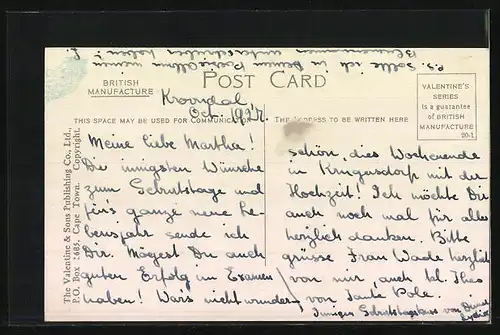 P.S. Sollte ich in Deinem Poesiealbum meinen
Blumennamen unterschreiben haben?
BRITISH
MANUFACTURE
POST CARD
VALENTINE'S
SERIES
is a guarantee
of BRITISH
MANUFACTURE
20-1
Kroondal,
Oct. 1927.
THIS SPACE MAY BE USED FOR COMMUNICATION
THE ADDRESS TO BE WRITTEN HERE
The Valentine & Sons Publishing Co., Ltd.
P.O. Box 1685, Cape Town. Copyright.
Meine liebe Martha!
Die innigsten Wünsche
zum Geburtstage und
für's ganze neue Le-
bensjahr sende ich
Dir. Mögest Du auch
guten Erfolg im Examen
haben! Wars nicht wunder-
schön, dies Wochenende
in Krugersdorp mit der
Hochzeit! Ich möchte Dir
auch noch mal für alles
herzlich danken. Bitte
grüsse Frau Wade herzlich
von mir, auch kl. Thea
von Tante Pola.
Innigen Geburtstagskuss von Deiner
Lydia